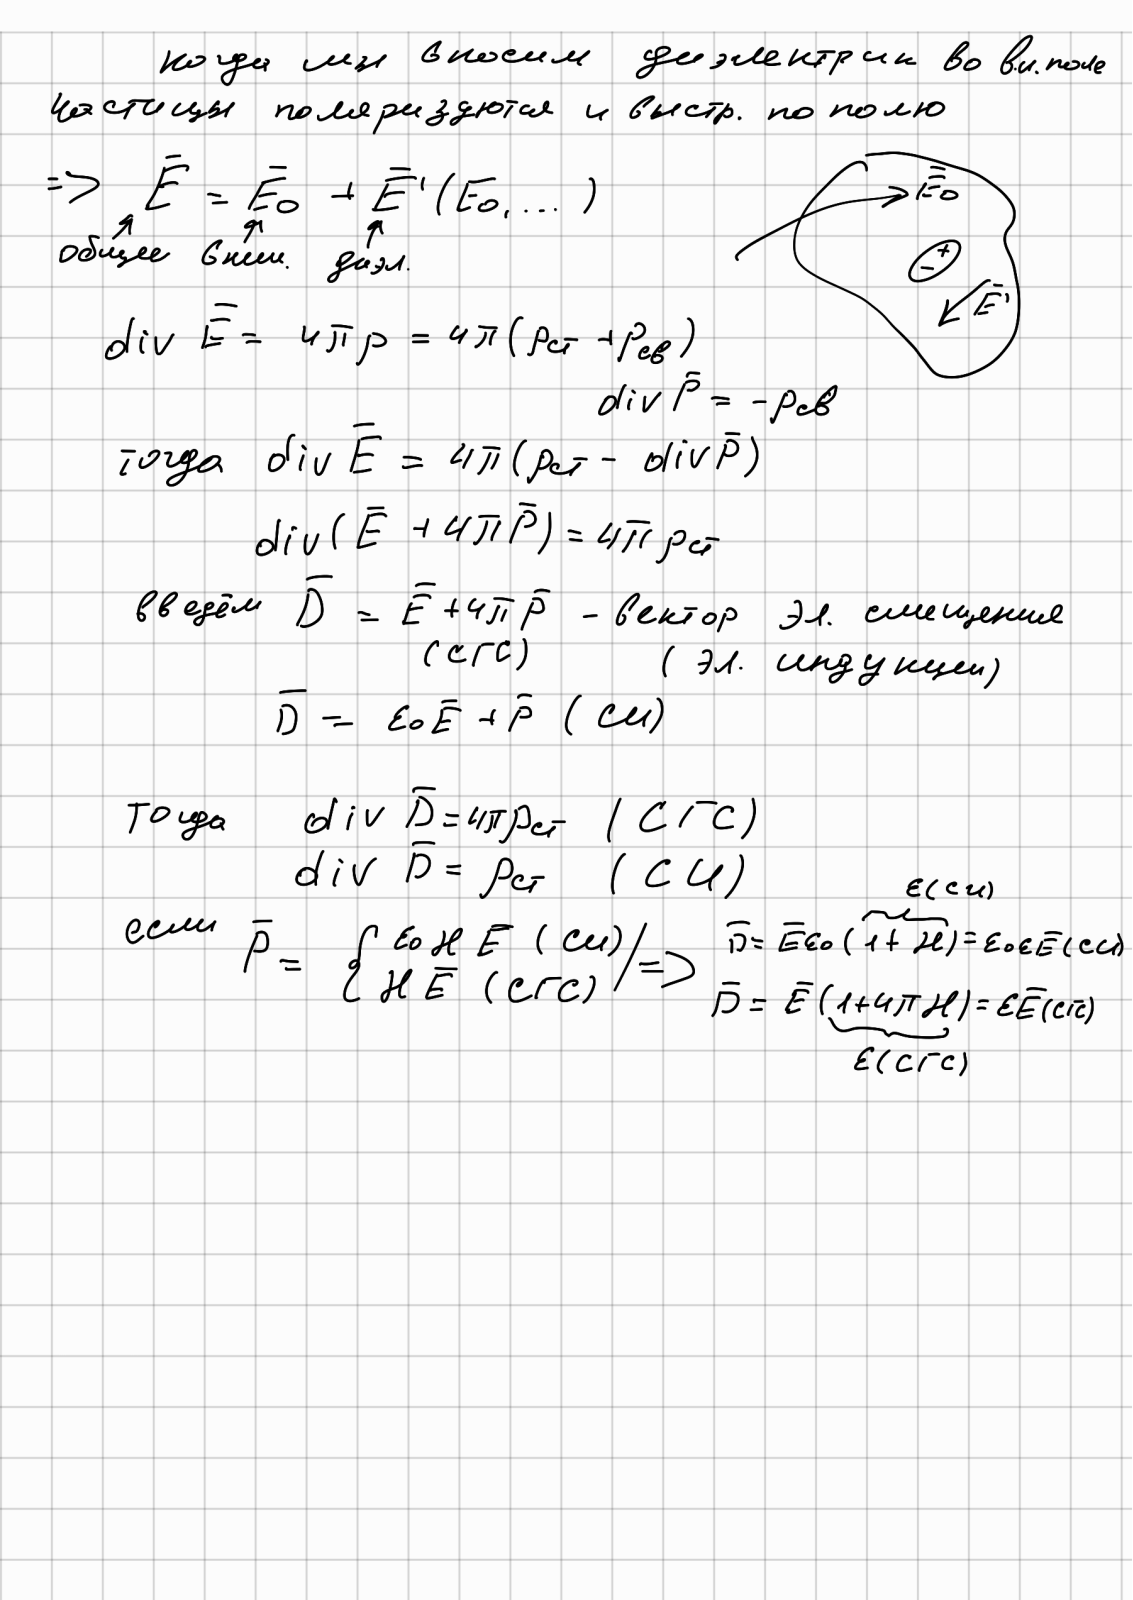 когда мы вносим диэлектрик во вн. поле
частицы поляризуются и выстр. по полю
=> Ē = Ē₀ + Ē'(E₀, ...)
общее внеш. диэл.
Ē₀
- +
Ē'
div Ē = 4πρ = 4π(ρст + ρсв)
div P̄ = -ρсв
тогда div Ē = 4π(ρст - div P̄)
div(Ē + 4πP̄) = 4πρст
введём D̄ = Ē + 4πP̄ - вектор эл. смещения
(СГС) (эл. индукции)
D̄ = ε₀Ē + P̄ (СИ)
Тогда div D̄ = 4πρст (СГС)
div D̄ = ρст (СИ)
ε(СИ)
если P̄ = { ε₀ϰĒ (СИ) / => D̄ = Ēε₀(1+ϰ) = ε₀εĒ(СИ)
ϰĒ (СГС) D̄ = Ē(1+4πϰ) = εĒ(СГС)
ε(СГС)